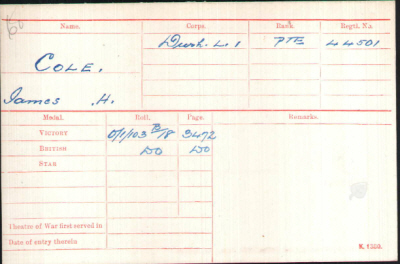 Name. Corps. Rank. Regtl. No.
Durh. L. I PTE 44501
COLE.
James H.
Medal. Roll. Page. Remarks.
VICTORY 0/1/103 B/8 3472
BRITISH DO DO
STAR
Theatre of War first served in
Date of entry therein
K. 1380.